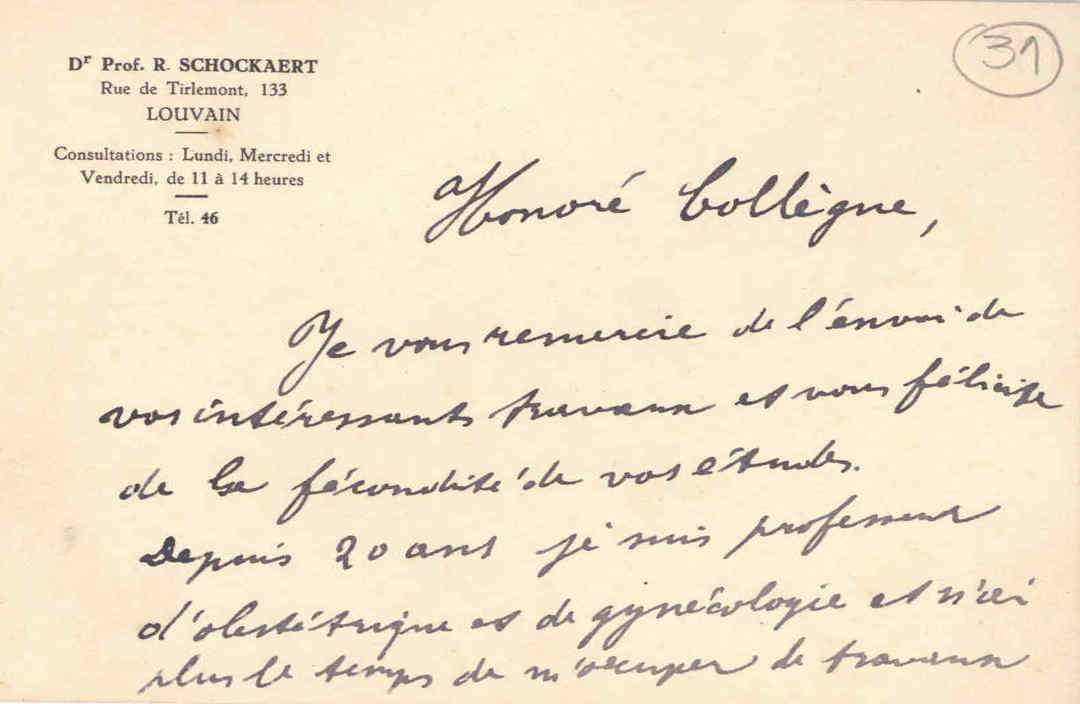 Dr Prof. R. SCHOCKAERT
Rue de Tirlemont, 133
LOUVAIN
Consultations : Lundi, Mercredi et
Vendredi, de 11 à 14 heures
Tél. 46
31
Honoré Collègue,
Je vous remercie de l'envoi de
vos intéressants travaux et vous félicite
de la fécondité de vos études.
Depuis 20 ans je suis professeur
d'obstétrique et de gynécologie et n'ai
plus le temps de m'occuper de travaux